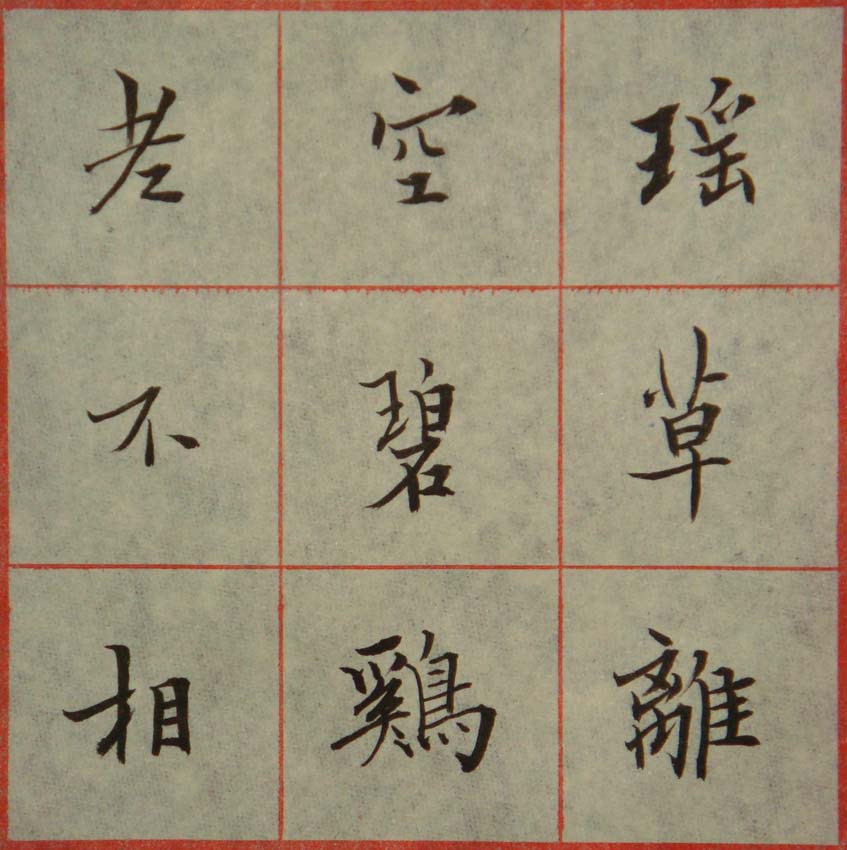 瑶草離
空碧鷄
老不相